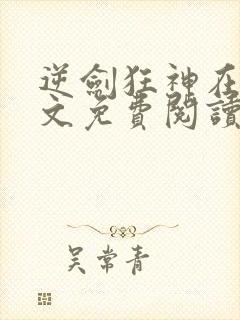 逆劍狂神在
文免費閱讀
吴常青